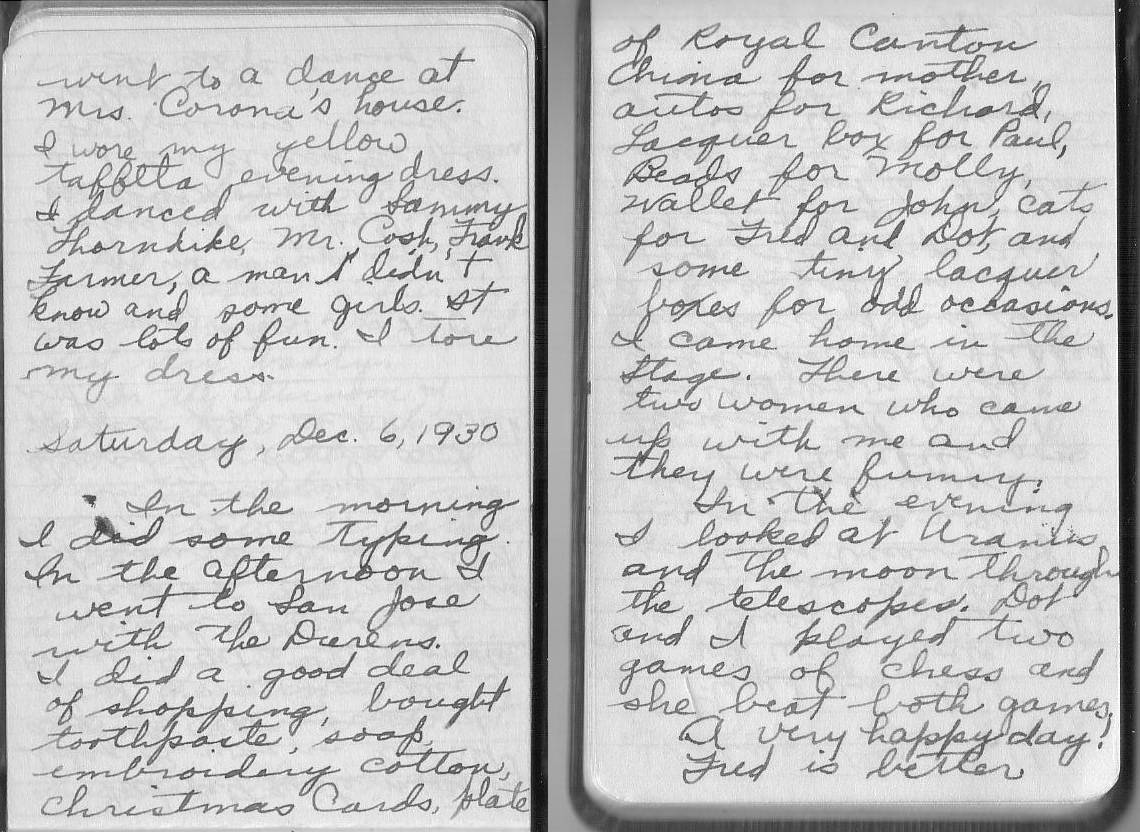 went to a dance at
Mrs. Corona's house.
I wore my yellow
taffeta evening dress.
I danced with Sammy
Thorndike, Mr. Cosh, Frank
Farmer, a man I didn't
know and some girls. It
was lots of fun. I tore
my dress.
Saturday, Dec. 6, 1930
In the morning
I did some typing.
In the afternoon I
went to San Jose
with the
I did a good deal
of shopping, bought
toothpaste, soap,
embroidery cotton,
Christmas Cards, plate
of Royal Canton
China for mother,
autos for Richard,
Lacquer box for Paul,
Beads for Molly,
wallet for John, cats
for Fred and Dot, and
some tiny lacquer
boxes for odd occasions.
I came home in the
Stage. There were
two women who came
up with me and
they were funny.
In the evening
I looked at Uranus
and the moon through
the telescopes. Dot
and I played two
games of chess and
she beat both games.
A very happy day!
Fred is better